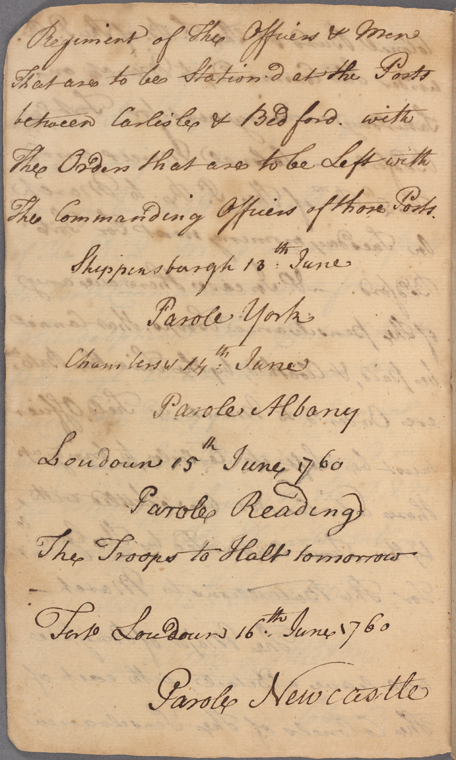 Regiment of the Officers & Men
that are to be Station'd at the Posts
between Carlisle & Bedford. with
The Orders that are to be Left with
The Commanding Officers of those Posts.
Shippensburgh 13th June
Parole York
Chambers's 14th June
Parole Albany
Loudoun 15th June 1760
Parole Reading
The Troops to Halt tomorrow
Fort Loudoun 16th June 1760
Parole Newcastle